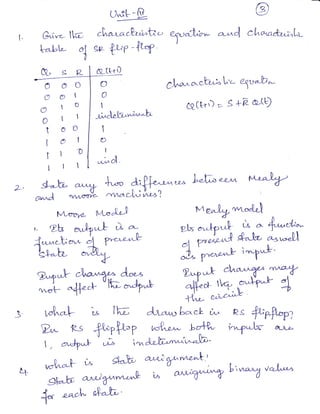 Unit - IV
3
1. Give the characteristic equation and characteristic
table of SR flip-flop.
Q S R Q(t+1)
0 0 0 0
0 0 1 0
0 1 0 1
0 1 1 indeterminate
1 0 0 1
1 0 1 0
1 1 0 1
1 1 1 ind.
characteristic equation
Q(t+1) = S+R̄ Q(t)
2. State any two differences between Mealy
and moore machines?
Moore Model
1. Its output is a
function of present
State only.
Input changes does
not affect the output
Mealy model
Its output is a function
of present state aswell
as present input.
Input changes may
affect the output of
the circuit
3 what is the drawback in RS flipflop?
In RS flipflop when both inputs are
1, output is indeterminate.
4. what is state assignment?
State assignment is assigning binary values
for each state.